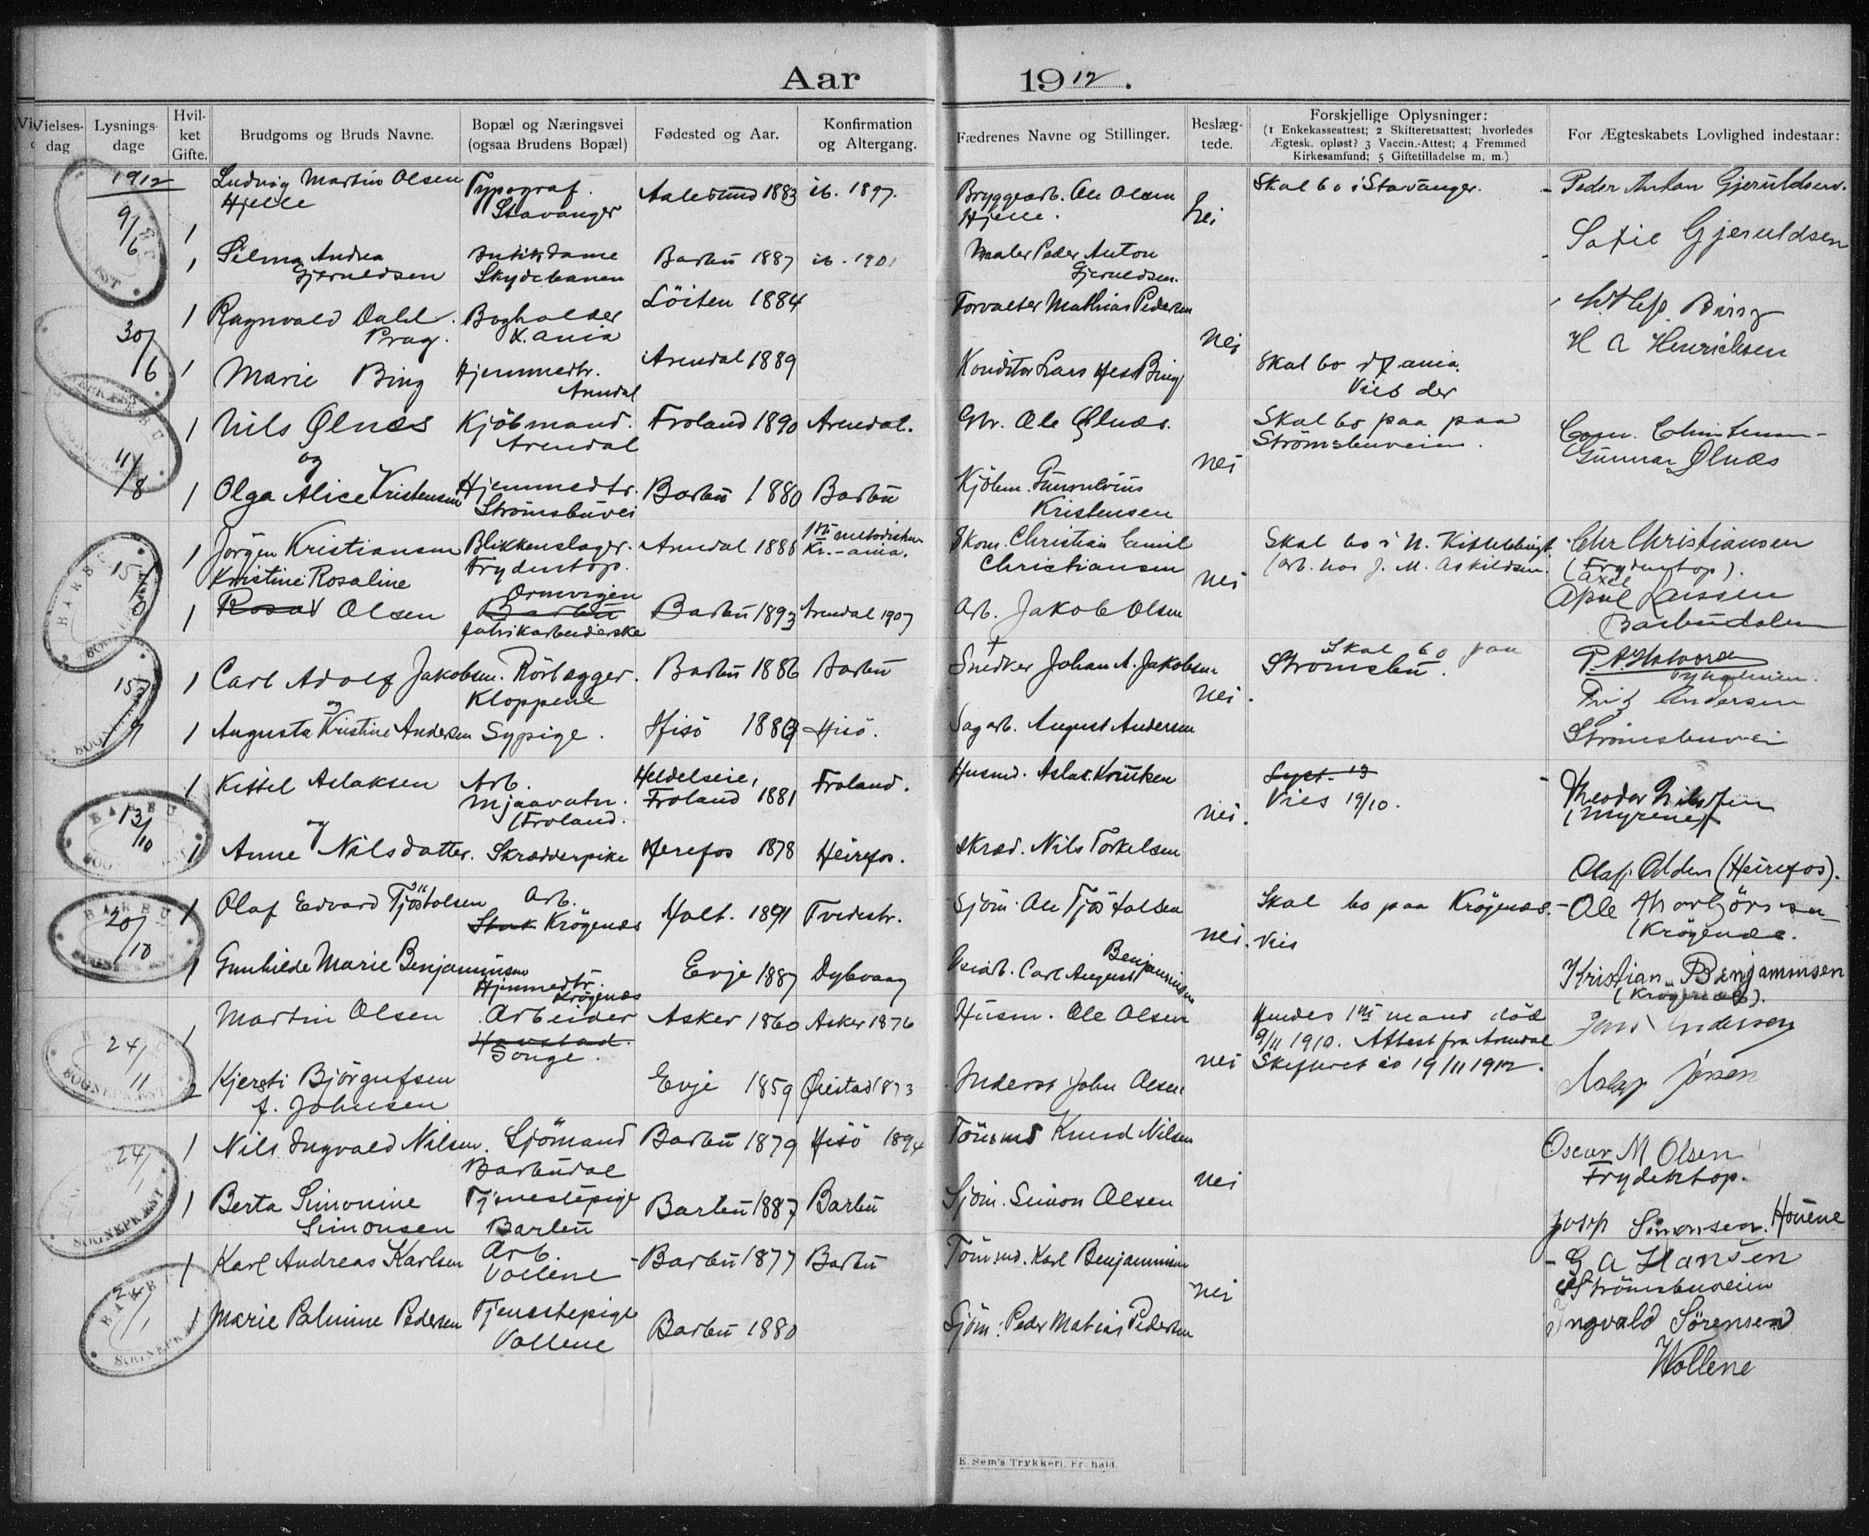 Aar 1912.
Vielsesdag
Lysningsdage
Hvilket Gifte.
Brudgoms og Bruds Navne.
Bopæl og Næringsvei (ogsaa Brudens Bopæl)
Fødested og Aar.
Konfirmation og Altergang.
Fædrenes Navne og Stillinger.
Beslægtede.
Forskjellige Oplysninger:
(1 Enkekasseattest; 2 Skifteretsattest; hvorledes
Ægtesk. opløst? 3 Vaccin.-Attest; 4 Fremmed
Kirkesamfund; 5 Giftetilladelse m. m.)
For Ægteskabets Lovlighed indestaar:
1912
9/6
1 Ludvig Martin Olsen Hjelle
Typograf. Stavanger
Aalesund 1883
ib. 1897.
Bryggearb. Ole Olsen Hjelle.
nei
Skal bo i Stavanger.
Peder Anton Gjeruldsen.
1 Selma Andrea Gjeruldsen
Butikdame Skydebanen
Barbu 1887
ib. 1901
Maler Peder Anton Gjeruldsen.
Sofie Gjeruldsen
30/6
1 Ragnvald Dahl Prag.
Bogholder K.ania
Löiten 1884
Forvalter Mathias Pedersen
nei
Bing
1 Marie Bing
Hjemmedtr. Arendal
Arendal 1889
Konditor Lars Hess Bing
Skal bo i Kr.ania.
Vies der
H A Henrichsen
11/8
1 Nils Ølnæs
og
Kjöbmand. Arendal
Froland 1890
Arendal.
Gbr. Ole Ølnæs.
nei
Skal bo paa paa
Strömsbuveien.
Gunnar Ølnæs
1 Olga Alice Kristensen
Hjemmedtr. Strömsbuvei
Barbu 1880
Barbu
Kjöbm. Kristensen
15/
1 Jörgen Kristiansen
Blikkenslager. Frydentop.
Arendal 1886
Kr.-ania.
Skom. Christian Emil Christiansen
nei
Skal bo i N.
(arb. hos J. M. Askildsen.
Chr Christiansen
(Frydentop).
1 Kristine Rosaline
Rosa Olsen
Ormvigen
Barbu
fabrikarbeiderske
Barbu 1893
Arendal 1907
Arb. Jakob Olsen
Axel
Barbudalen
15/9
1 Carl Adolf Jakobsen.
og
Rörlægger. Kloppene
Barbu 1886
Barbu
Snedker Johan A. Jakobsen
nei.
Skal bo paa
Strömsbu.
1 Augusta Kristine Andersen
Sypige.
Hisö 1889
Hisö.
Sagarb. August Andersen
Andersen
Strömsbuvei
13/10
1 Kittel Aslaksen
og
Arb. Mjaavatn. (Froland.
Heldelseie, Froland 1881
Froland.
Husmd. Aslak Knutsen
nei.
Vies 19/10.
Theodor Nilsen
(Myrene)
1 Anne Nilsdatter.
Skrædderpike
Herefos 1878
Heirefos.
Skræd. Nils Torkelsen
Olaf Olden (Heirefos).
20/10
1 Olaf Edvard Tjöstolsen
Arb. Krögenæs
Holt. 1891
Tvedestr.
Sjöm. Ole Tjöstolsen
nei.
Skal bo paa Krögenæs.
Vies
Ole Thorbjörnsen
(Krögenæs.
1 Gunhilde Marie Benjaminsen
Hjemmedtr. Krögenæs
Evje 1887
Dybvaag
Carl August Benjaminsen
Kristian Benjaminsen
(Krögenæs).
24/11
1 Martin Olsen
Arbeider
Havstad.
Songe.
Asker 1860
Asker 1876
Husm. Ole Olsen
nei
Hendes 1ste mand död
9/11 1910. Attest fra Arendal
Skifteret 19/11 1912.
Jens Andersen
2 Kjersti Björgufsen
f. Johnsen
Evje 1859
Øiestad 1873
Inderst John Olsen
24/1
1 Nils Ingvald Nilsen.
Sjömand Barbudal
Barbu 1879
Hisö 1894
Tömmd Knud Nilsen
nei
Oscar M Olsen
Frydentop.
1 Berta Simonine Simonsen
Tjenestepige Barbu
Barbu 1887
Barbu
Sjöm. Simon Olsen
Josep Simonsen. Houene
1 Karl Andreas Karlsen
Arb. Vollene
Barbu 1877
Barbu
Tömmd. Karl Benjaminsen
nei
G A Hansen
Strömsbuveien
1 Marie Palmine Pedersen
Tjenestepige Vollene
Barbu 1880
Sjöm. Peder Matias Pedersen
Ingvald Sörensen
Wollene
BARBU SOGNEPRÆST
E. Sem's Trykkeri, Fr.hald.